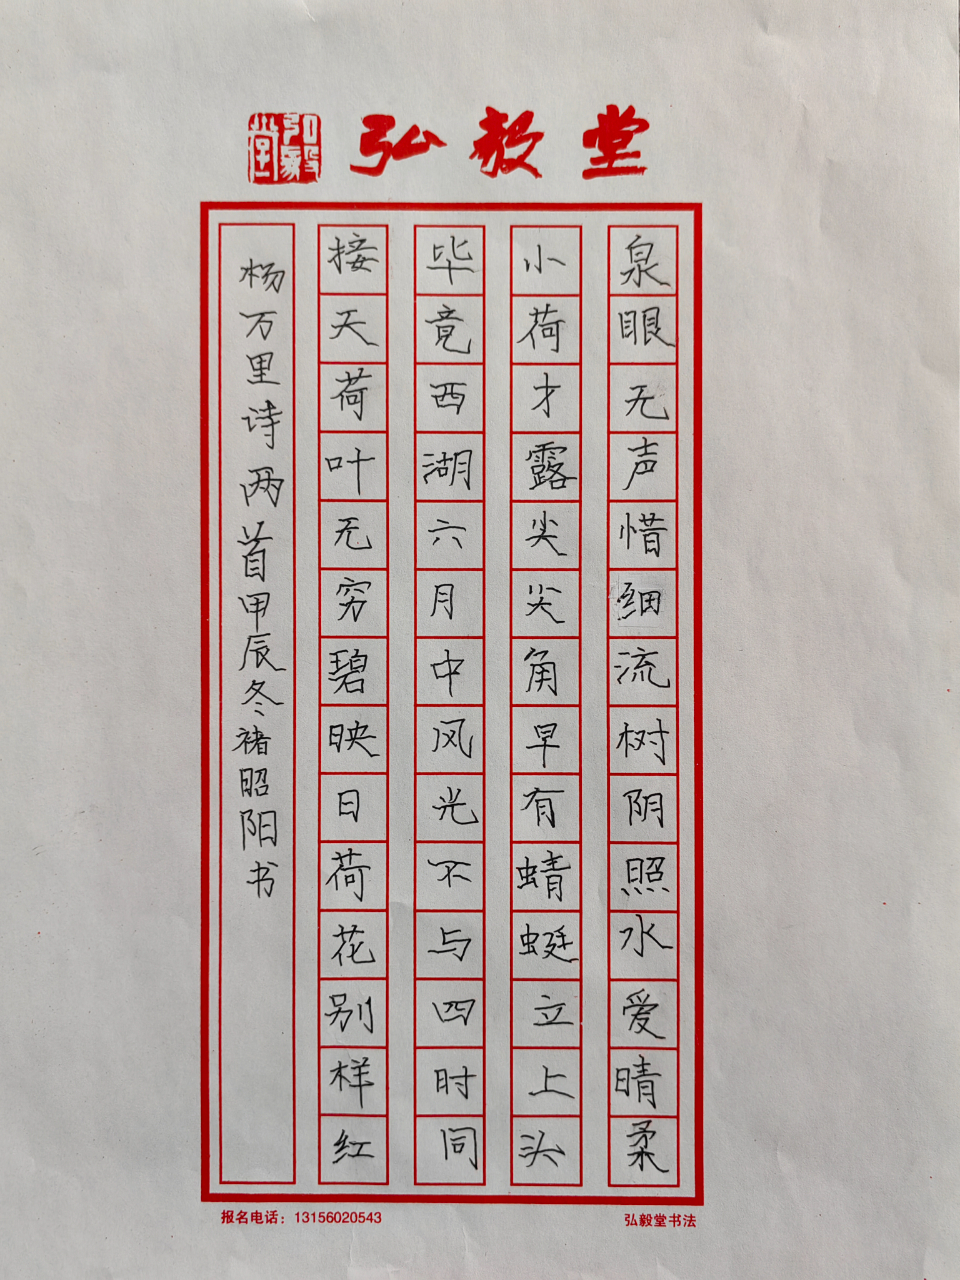 弘毅堂
弘毅堂
泉眼无声惜细流树阴照水爱晴柔
小荷才露尖尖角早有蜻蜓立上头
毕竟西湖六月中风光不与四时同
接天荷叶无穷碧映日荷花别样红
杨万里诗两首甲辰冬褚昭阳书
报名电话：13156020543
弘毅堂书法